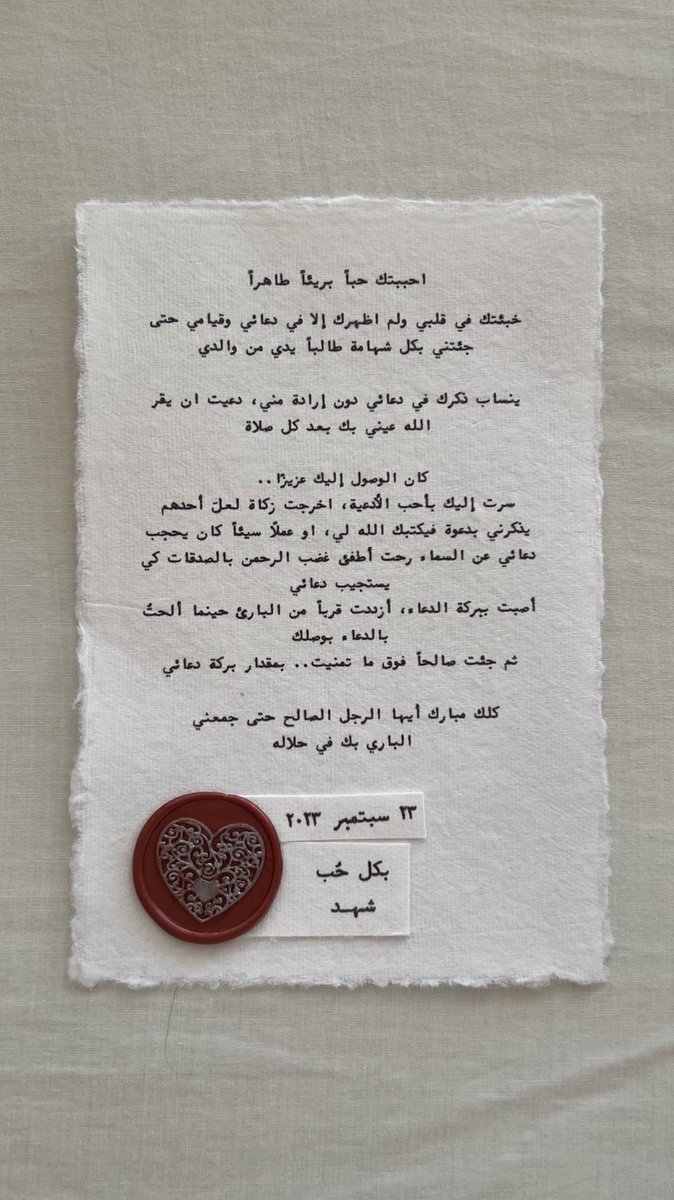 احببتك حباً بريئاً طاهراً
خبئتك في قلبي ولم اظهرك إلا في دعائي وقيامي حتى
جئتني بكل شهامة طالباً يدي من والدي
ينساب ذكرك في دعائي دون إرادة مني، دعيت ان يقر
الله عيني بك بعد كل صلاة
كان الوصول إليك عزيزًا..
سرت إليك بأحب الأدعية، اخرجت زكاة لعلّ أحدهم
يذكرني بدعوة فيكتبك الله لي، او عملًا سيئاً كان يحجب
دعائي عن السماء رحت أطفئ غضب الرحمن بالصدقات كي
يستجيب دعائي
أصبت ببركة الدعاء، أزددت قرباً من البارئ حينما ألحتُ
بالدعاء بوصلك
ثم جئت صالحاً فوق ما تمنيت.. بمقدار بركة دعائي
كلك مبارك أيها الرجل الصالح حتى جمعني
الباري بك في حلاله
٢٣ سبتمبر ٢٠٢٣
بكل حُب
شهـد